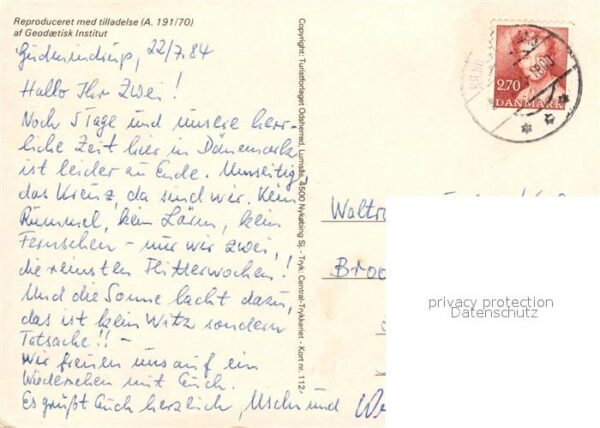 Reproduceret med tilladelse (A. 191/70)
af Geodætisk Institut
Gudmindrup, 22/7.84
Hallo Ihr Zwei!
Noch 5 Tage und unsere herr-
liche Zeit hier in Dänemark
ist leider zu Ende. Umseitig,
das Kreuz, da sind wir. Kein
Rummel, kein Lärm, kein
Fernsehen - nur wir zwei,
die reinsten Flitterwochen!
Und die Sonne lacht dazu,
das ist kein Witz sondern
Tatsache!! -
Wir freuen uns auf ein
Wiedersehen mit Euch.
Es grüßt Euch herzlich, Uschi und
Copyright: Turistforlaget Odsherred, Lumsås, 4500 Nykøbing Sj. - Tryk: Central-Trykkeriet - Kort nr. 112-
2.70
DANMARK
Waltr
Broo
privacy protection
Datenschutz